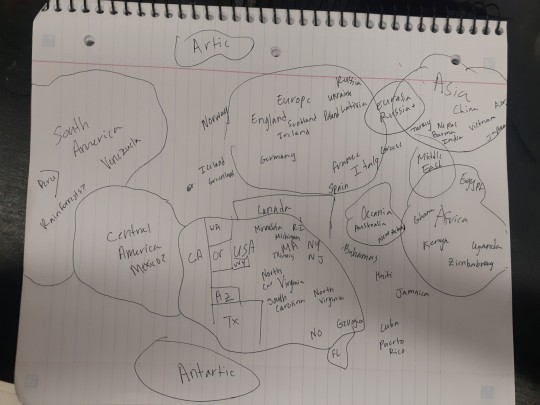 Artic
South
America
Venezuela
Peru
Rainforests?
Central
America
Mexico?
Norway
Iceland
Greenland
Europe
England
Scotland
Ireland
Germany
Russia
Ukraine
Poland
France
Italy
Greece
Spain
Eurasia
Russia
Asia
China
Turkey
Nepal
Burma
India
Vietnam
Japan
Middle
East
Egypt
Africa
Ghana
Kenya
Uganda
Oceania
Australia
Canada
WA
CA
OR
USA
NY
NJ
RI
MA
Michigan
AZ
TX
North
Virginia
South
Carolina
North
Virginia
NO
FL
Bahamas
Haiti
Jamaica
Cuba
Puerto
Rico
Antartic